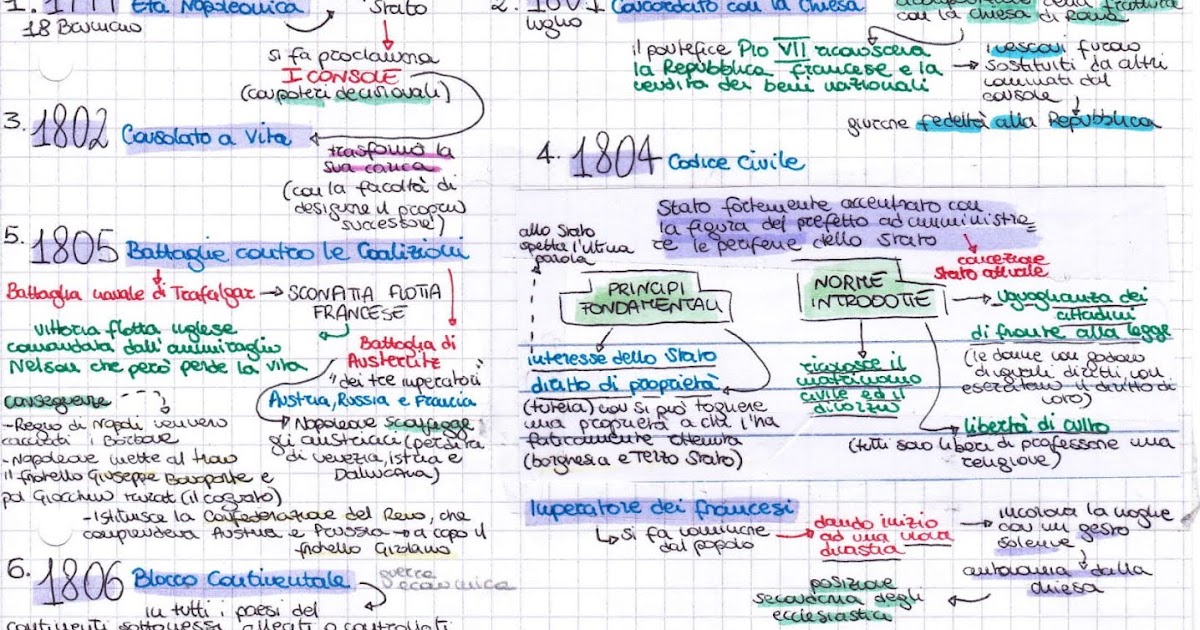 1. 1799 Età Napoleonica
Stato
18 Brumaio
si fa proclamare
I CONSOLE
(con poteri decisionali)
2. 1801 Concordato con la Chiesa
luglio
della frattura
con la chiesa di Roma
il pontefice Pio VII riconosceva
la Repubblica francese e la
vendita dei beni nazionali
i vescovi furono
sostituiti da altri
nominati dal
console
giurare fedeltà alla Repubblica
3. 1802 Consolato a Vita
trasformò la
sua carica
(con la facoltà di
designare il proprio
successore)
4. 1804 Codice Civile
Stato fortemente accentrato con
la figura del prefetto ad amministra
re le periferie dello Stato
concezione
Stato attuale
allo Stato
spetta l'ultima
parola
PRINCIPI
FONDAMENTALI
interesse dello Stato
diritto di proprietà
(tutela) non si può togliere
una proprietà a chi l'ha
faticosamente ottenuta
(borghesia e Terzo Stato)
NORME
INTRODOTTE
riconosce il
matrimonio
civile ed il
divorzio
uguaglianza dei
cittadini
di fronte alla legge
(le donne non godono
di uguali diritti, non
esercitano il diritto di
voto)
libertà di culto
(tutti sono liberi di professare una
religione)
Imperatore dei francesi
si fa nominare
dal popolo
dando inizio
ad una nuova
dinastia
incorona la moglie
con un gesto
solenne
autonomia dalla
chiesa
posizione
secondaria degli
ecclesiastici
5. 1805 Battaglie contro le Coalizioni
Battaglia navale di Trafalgar
SCONFITTA FLOTTA
FRANCESE
vittoria flotta inglese
comandata dall'ammiraglio
Nelson che però perde la vita
Battaglia di
Austerlitz
"dei tre imperatori"
Austria, Russia e Francia
Napoleone sconfigge
gli austriaci (perdita
di Venezia, Istria e
Dalmazia)
conseguenze
-Regno di Napoli vennero
cacciati i Borbone
-Napoleone mette al trono
il fratello Giuseppe Bonaparte e
poi Giacchino Murat (il cognato)
-Istituisce la Confederazione del Reno, che
comprendeva Austria e Prussia a capo il
fratello Girolamo
6. 1806 Blocco Continentale
guerra
economica
in tutti i paesi del
continenti sottomessi, alleati o controllati